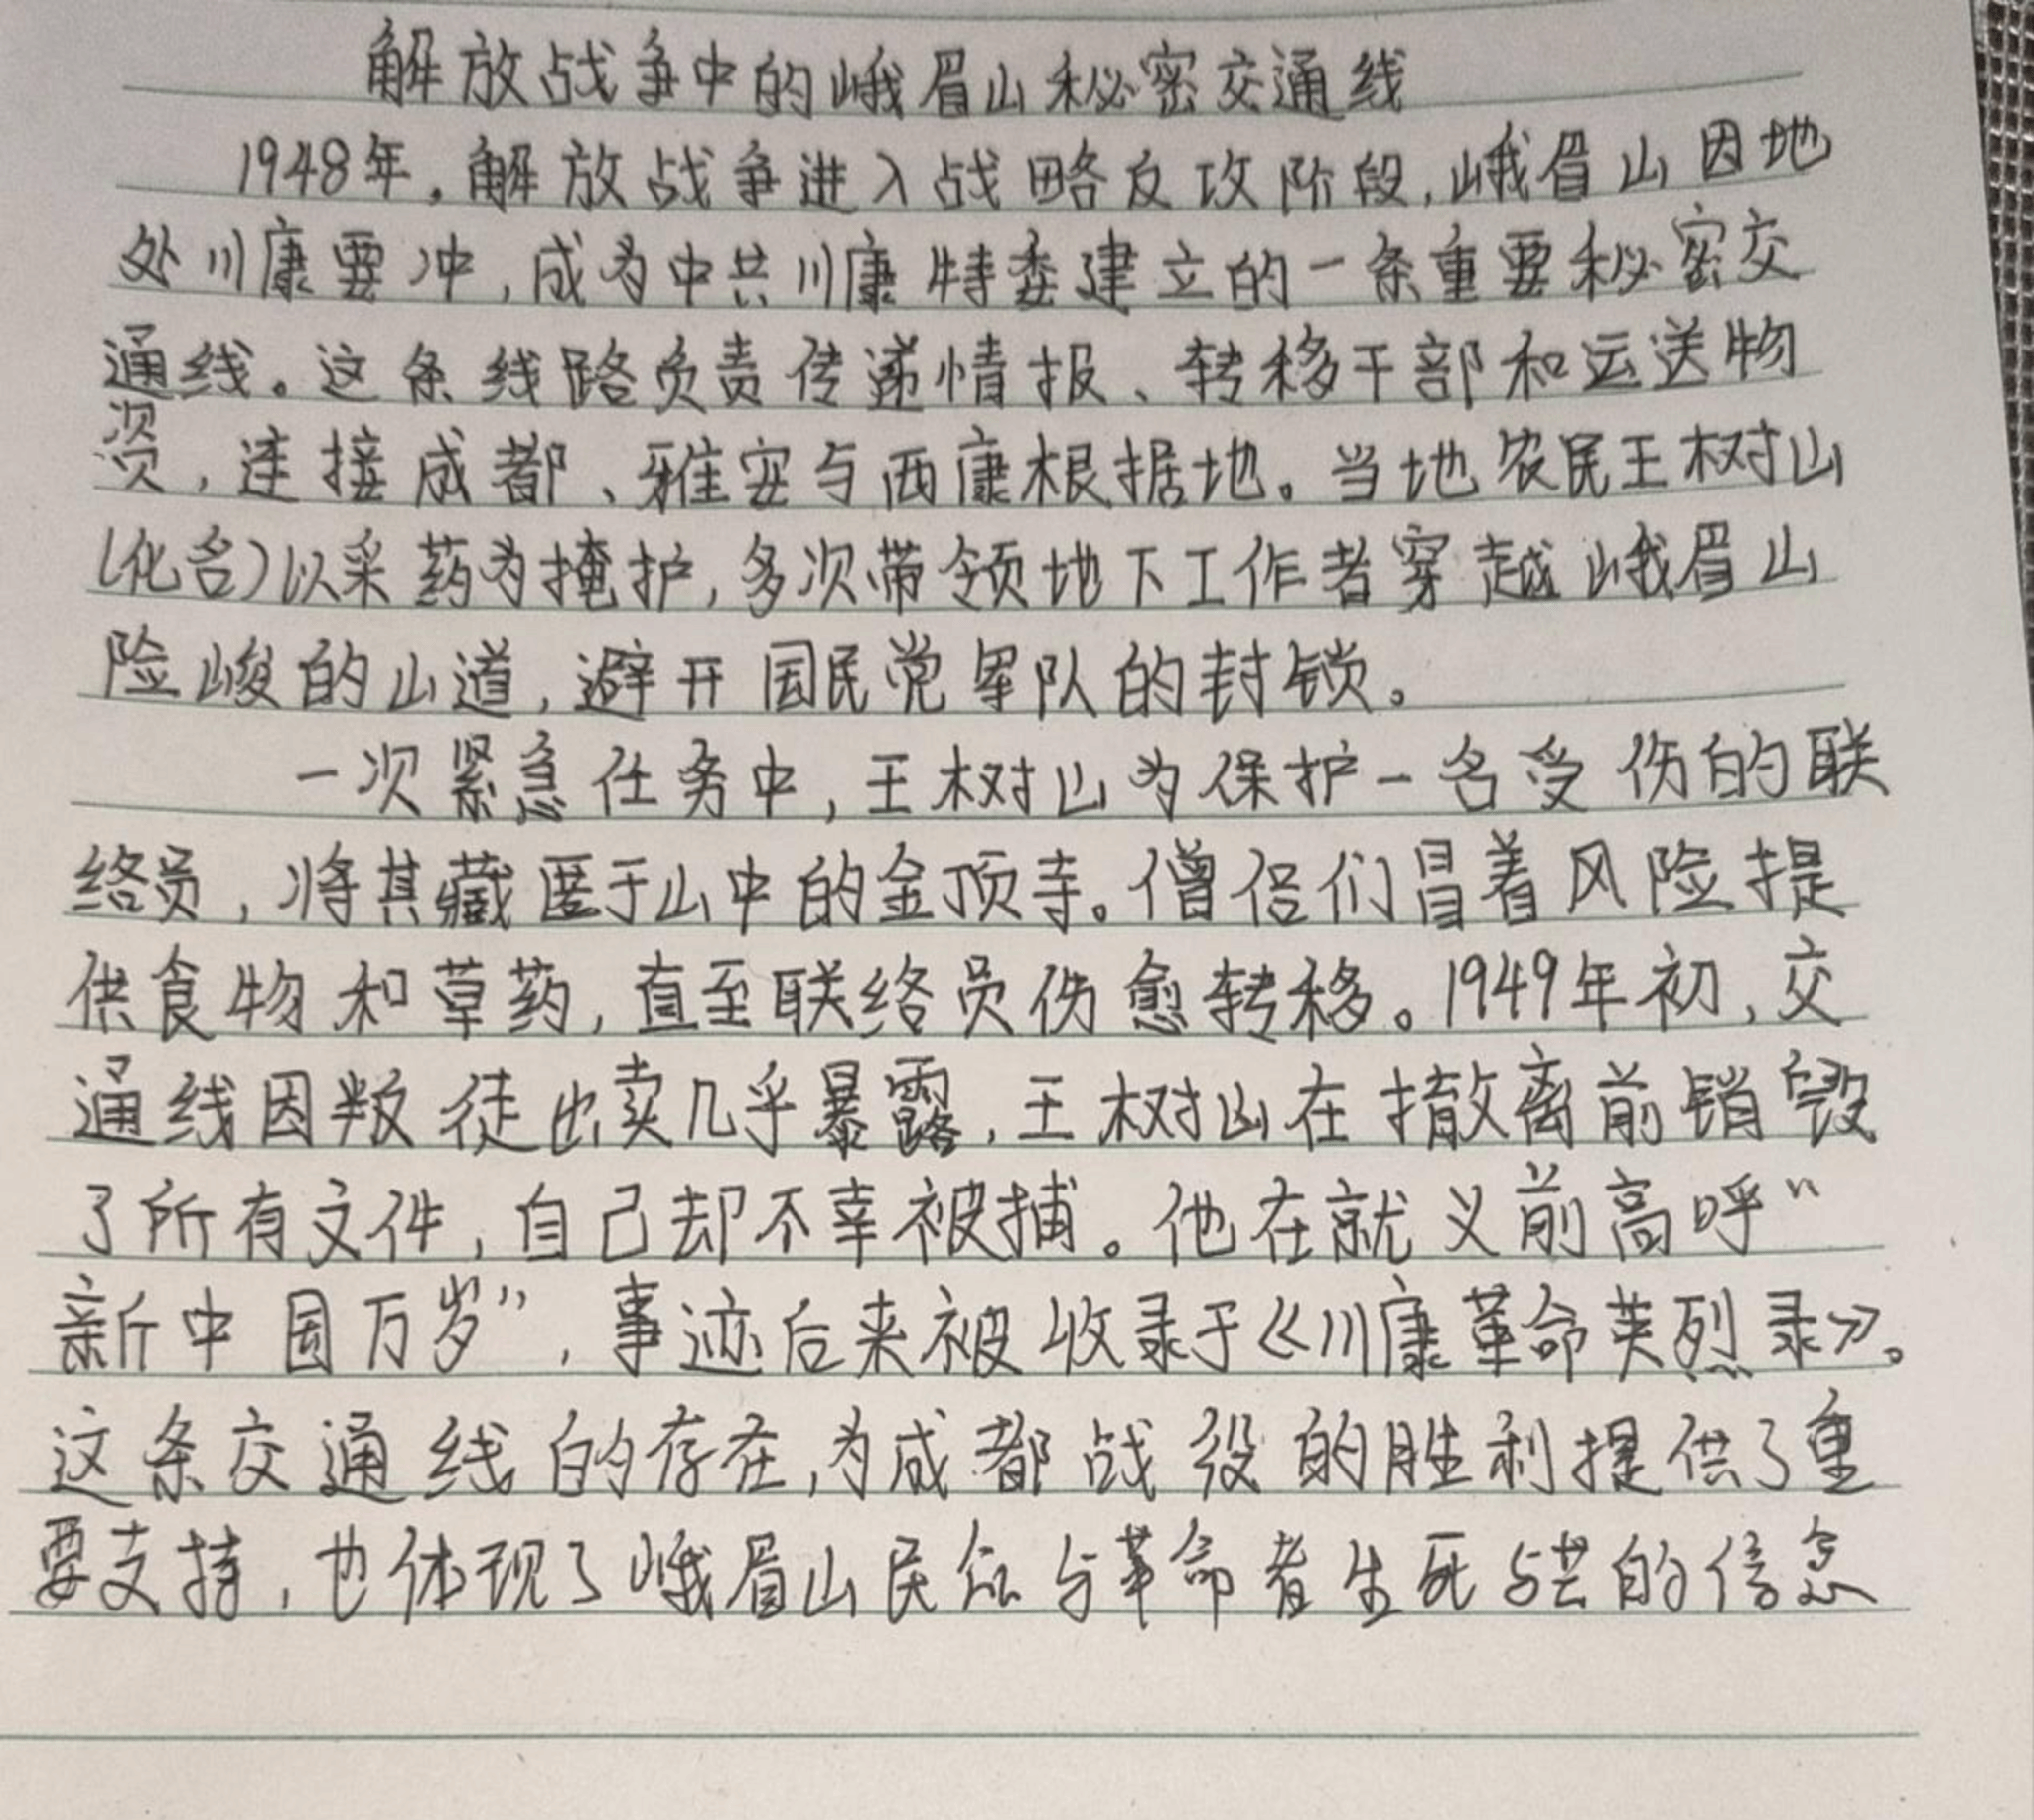 解放战争中的峨眉山秘密交通线
1948年,解放战争进入战略反攻阶段,峨眉山因地
处川康要冲,成为中共川康特委建立的一条重要秘密交
通线。这条线路负责传递情报、转移干部和运送物
资,连接成都、雅安与西康根据地。当地农民王树山
(化名)以采药为掩护,多次带领地下工作者穿越峨眉山
险峻的山道,避开国民党军队的封锁。
一次紧急任务中,王树山为保护一名受伤的联
络员,将其藏匿于山中的金顶寺。僧侣们冒着风险提
供食物和草药,直至联络员伤愈转移。1949年初,交
通线因叛徒出卖几乎暴露,王树山在撤离前销毁
了所有文件,自己却不幸被捕。他在就义前高呼“
新中国万岁”,事迹后来被收录于《川康革命英烈录》。
这条交通线的存在,为成都战役的胜利提供了重
要支持,也体现了峨眉山民众与革命者生死与共的信念